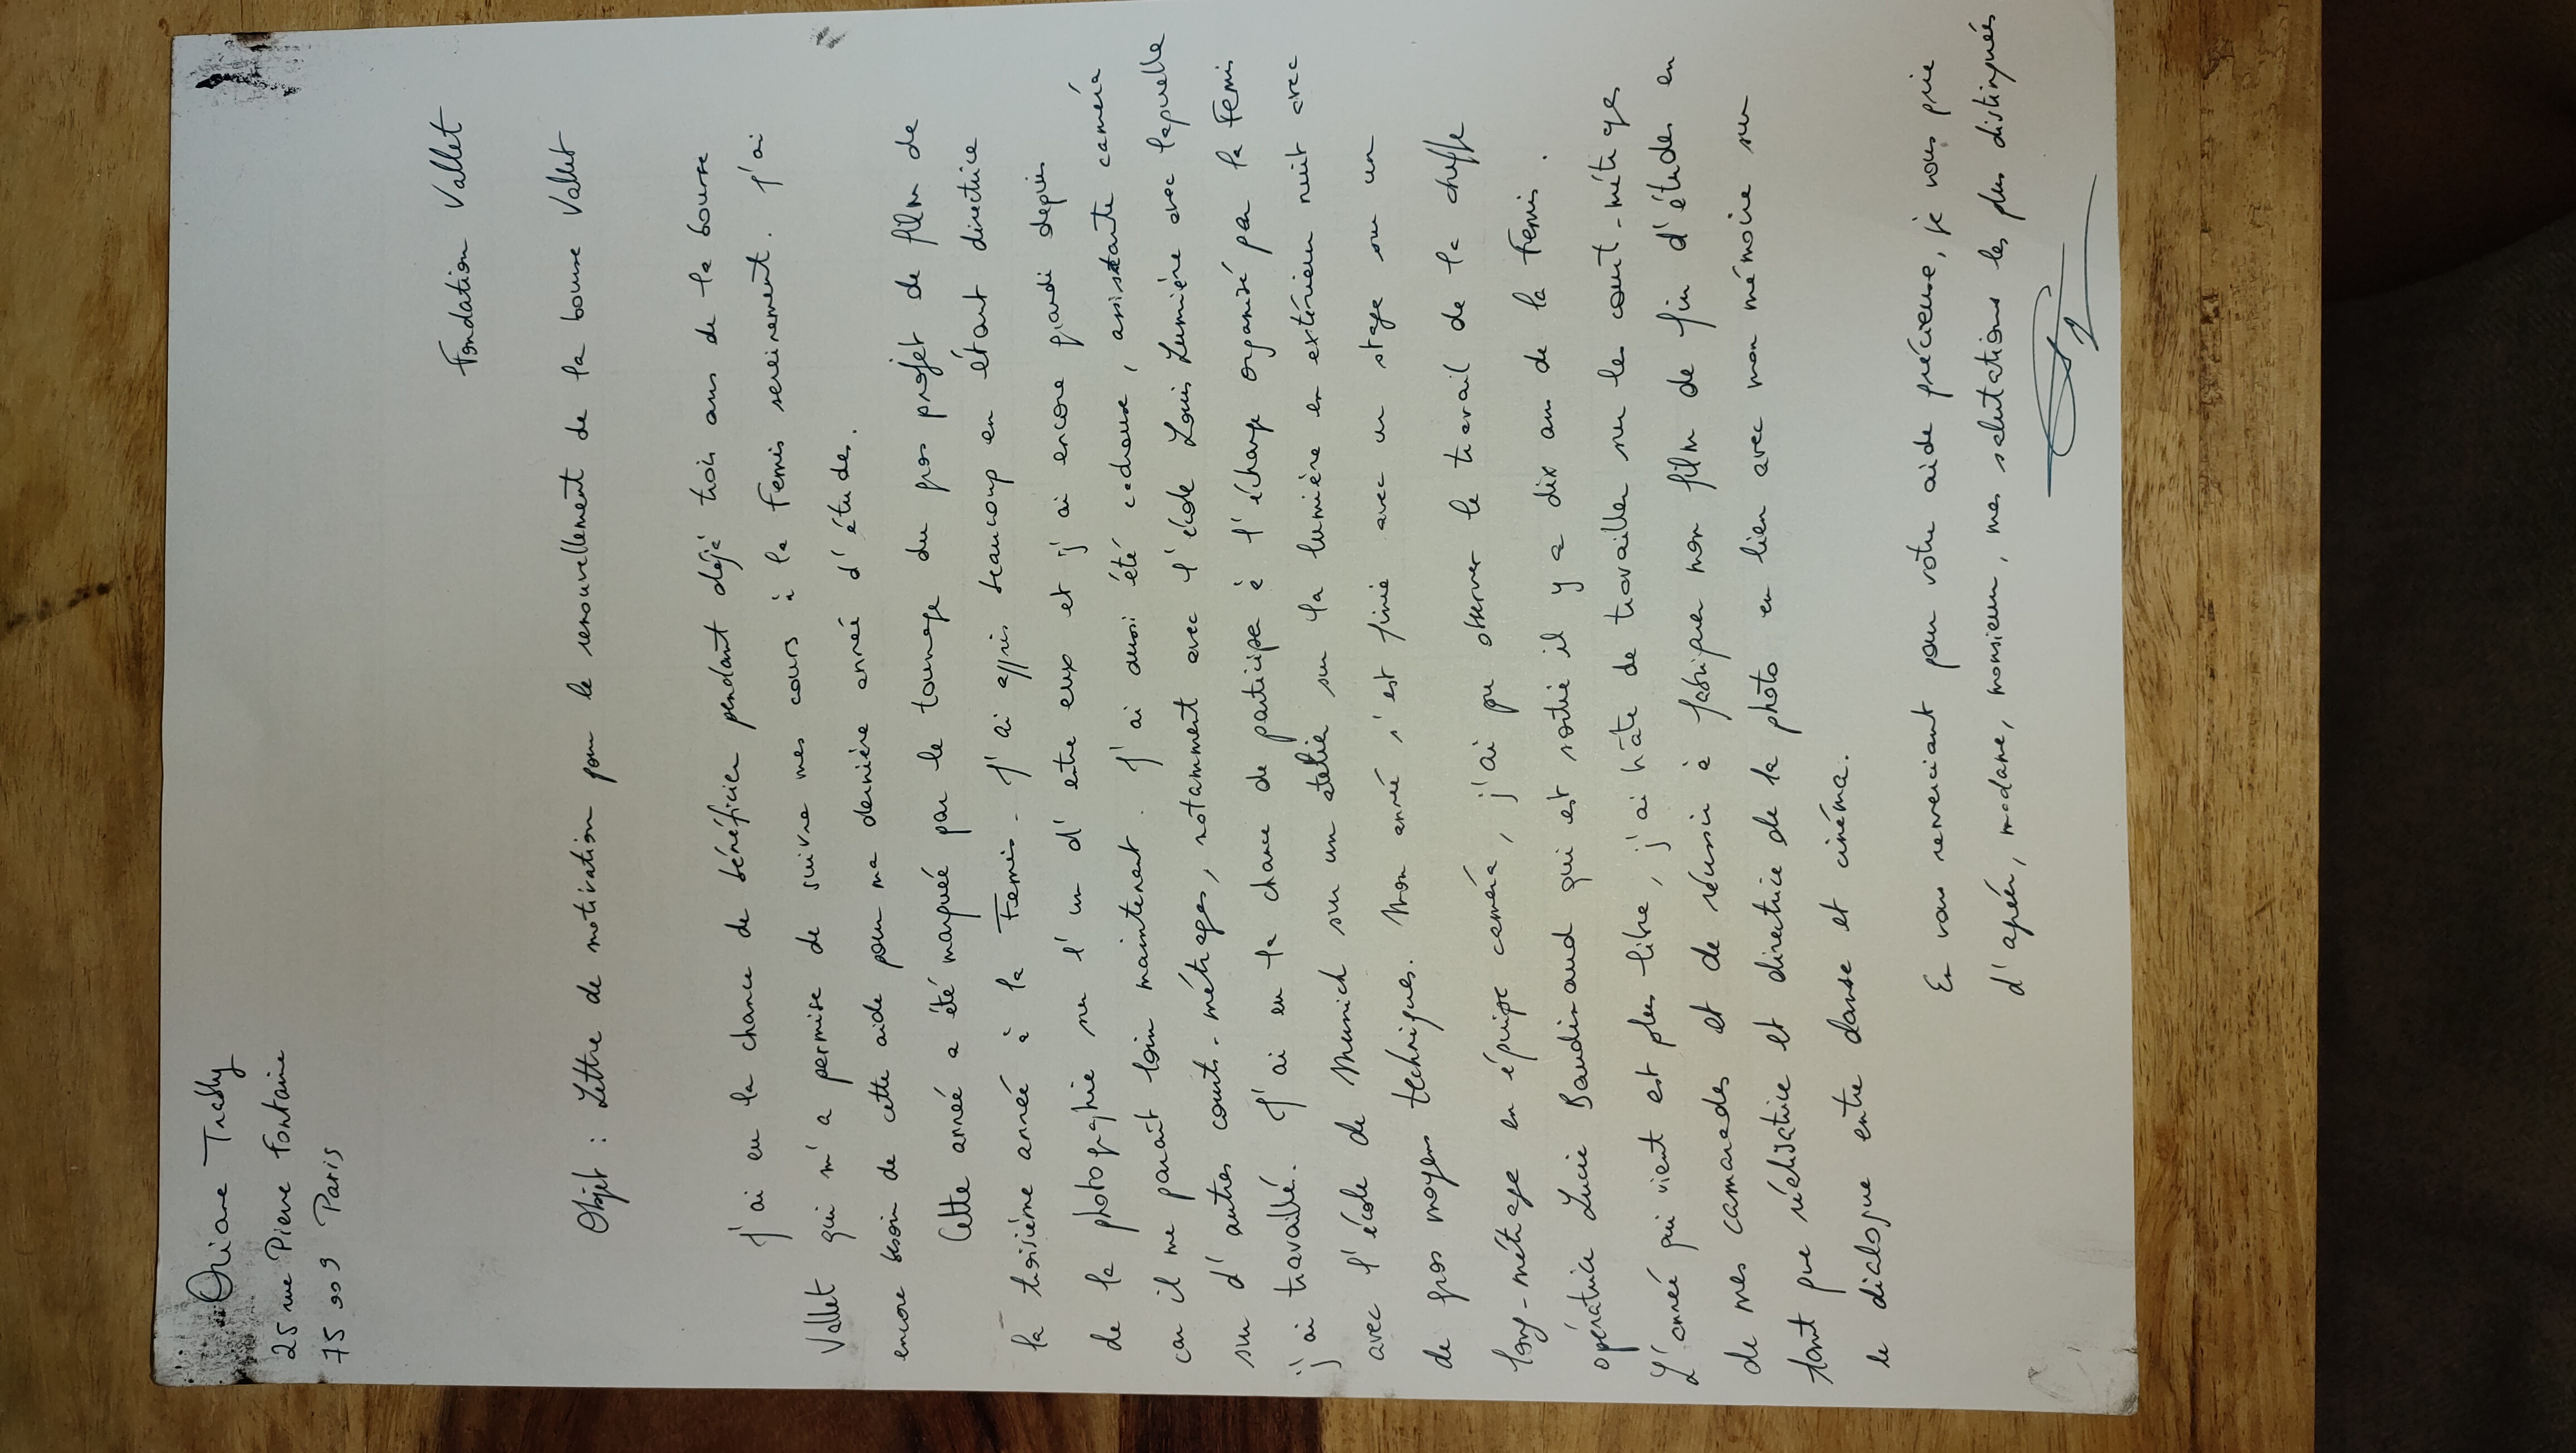 Oriane Trably
25 rue Pierre Fontaine
75 009 Paris
Fondation Vallet
Objet : Lettre de motivation pour le renouvellement de la bourse Vallet
J'ai eu la chance de bénéficier pendant déjà trois ans de la bourse
Vallet qui m'a permise de suivre mes cours à la Femis sereinement. J'ai
encore besoin de cette aide pour ma dernière année d'études.
Cette année a été marquée par le tournage du gros projet de film de
la troisième année à la Femis. J'ai appris beaucoup en étant directrice
de la photographie sur l'un d'entre eux et j'ai encore grandi depuis
car il me parait loin maintenant. J'ai aussi été cadreuse, assistante caméra
sur d'autres courts-métrages, notamment avec l'école Louis Lumière avec laquelle
j'ai travaillé. J'ai eu la chance de participer à l'échange organisé par la Femis
avec l'école de Munich sur un atelier sur la lumière en extérieur nuit avec
de gros moyens techniques. Mon année s'est finie avec un stage sur un
long-métrage en équipe caméra, j'ai pu observer le travail de la cheffe
opératrice Lucie Baudinaud qui est sortie il y a dix ans de la Femis.
L'année qui vient est plus libre, j'ai hâte de travailler sur les court-métrages
de mes camarades et de réussir à fabriquer mon film de fin d'études en
tant que réalisatrice et directrice de la photo en lien avec mon mémoire sur
le dialogue entre danse et cinéma.
En vous remerciant pour votre aide précieuse, je vous prie
d'agréer, madame, monsieur, mes salutations les plus distinguées